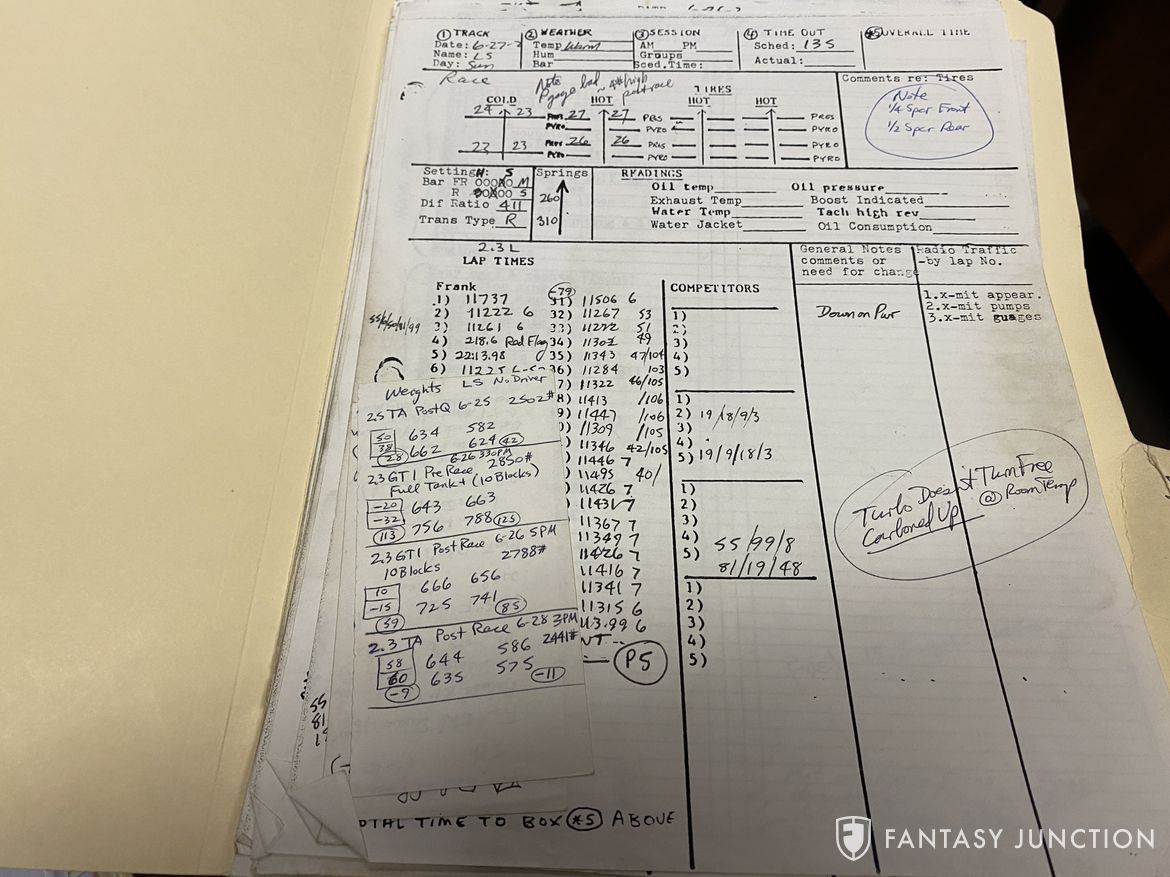 ① TRACK ② WEATHER ③ SESSION ④ TIME OUT *5 OVERALL TIME
Date: 6-27- Temp Warm AM PM Sched: 135
Name: LS Hum Groups Actual:
Day: Sun Bar Sced.Time:
Race
Note
P gage bad ~ 4# high
post race
TIRES
Comments re: Tires
COLD HOT HOT HOT
Note
1/4 Spcr Front
1/2 Spcr Rear
24 23 PRES 27 27 PRES PRES
PYRO PYRO PYRO
22 23 PRES 26 26 PRES PRES
PYRO PYRO PYRO
Setting H: S Springs READINGS
Bar FR M
R S
260
310
Dif Ratio 411
Trans Type R
Oil temp Oil pressure
Exhaust Temp Boost Indicated
Water Temp Tach high rev
Water Jacket Oil Consumption
2.3 L
LAP TIMES
General Notes
comments or
need for change
Radio Traffic
-by lap No.
1.x-mit appear.
2.x-mit pumps
3.x-mit guages
Down on Pwr
Turbo Doesn't Turn Free
@ Room Temp
Carboned Up
Frank -79
55/6/50/81/99
1) 11737 31) 11506 6
2) 11222 6 32) 11267 53
3) 11261 6 33) 11222 51
4) 218.6 Red Flag 34) 11302 49
5) 22:13.98 35) 11343 47/104
6) 11225 36) 11284 103
7) 11322 46/105
8) 11413 /106
9) 11447 /106
) 11309 /105
) 11346 42/105
) 11446 7
) 11495 40/
) 11426 7
) 11431 7
11367 7
11349 7
11426 7
11416 7
11341 7
11315 6
113.99 6
NT
P5
COMPETITORS
1)
2)
3)
4)
5)
1)
2) 19/18/9/3
3)
4)
5) 19/9/18/3
1)
2)
3)
4) 55/99/8
5) 81/19/48
1)
2)
3)
4)
5)
Weights LS No Driver
2.5 TA Post Q 6-25 2502#
50 634 582
38 662 624 42
28
6-26 330PM
2.3 GT1 Pre Race, 2850#
Full Tank + (10 Blocks)
-20 643 663
-32 756 788 125
113
2.3 GT1 Post Race 6-26 5PM
10 Blocks 2788#
10 666 656
-15 725 741 85
59
2.3 TA Post Race 6-28 3PM
2441#
58 644 586
60 635 575 -11
-9
55
81
OTAL TIME TO BOX *5 ABOVE
FANTASY JUNCTION